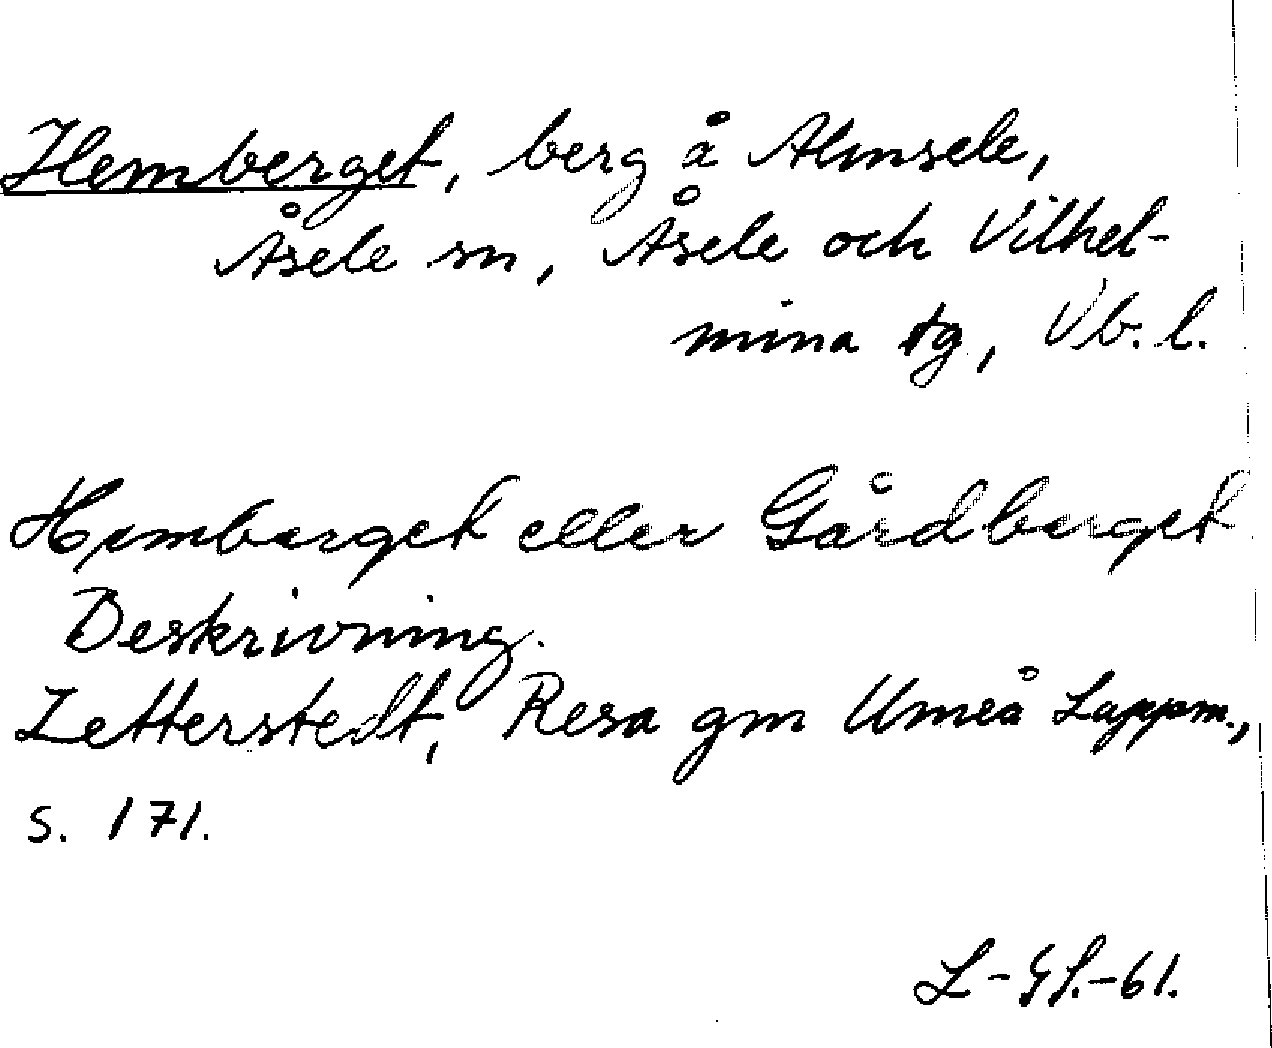 Hemberget, berg å Almsele,
Åsele sn, Åsele och Vilhel-
mina tg, Vb. l.
Hemberget eller Gårdberget
Beskrivning.
Zetterstedt, Resa gm Umeå Lappm.,
s. 171.